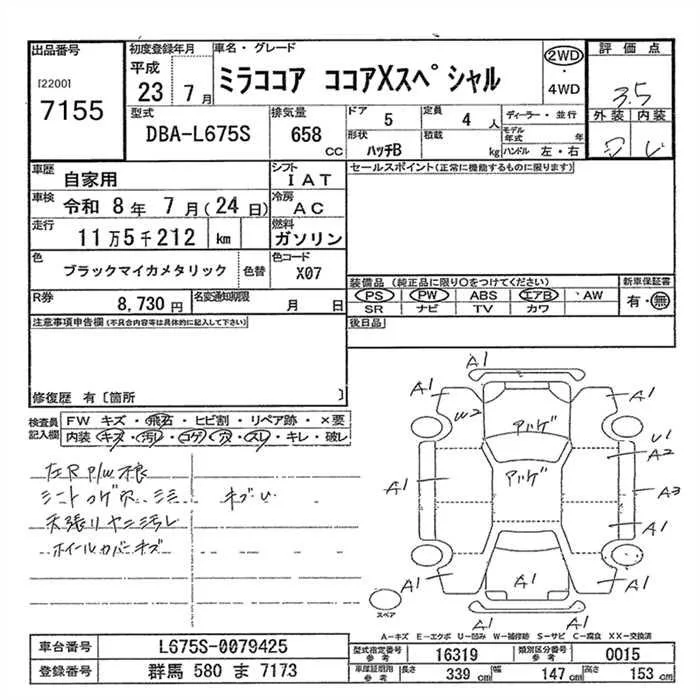 出品番号
[2200]
7155
初度登録年月
平成
23 7月
車名・グレード
ミラココア ココアXスペシャル
2WD
・
4WD
評価点
3.5
外装 内装
型式
DBA-L675S
排気量
658
cc
ドア
5
定員
4
人
形状
ハッチB
積載
kg
ディーラー・並行
モデル
年式
年
ハンドル 左・右
車歴
自家用
シフト
IAT
車検
令和 8年 7月(24日)
冷房
AC
走行
11万5千212 km
燃料
ガソリン
色
ブラックマイカメタリック
色替
色コード
X07
R券
8,730円
名変通知期限
月 日
セールスポイント(正常に機能するものに限ります)
装備品 (純正品に限り○をつけてください)
PS PW ABS エアB AW
SR ナビ TV カワ
新車保証書
有・無
後日品
注意事項申告欄(不具合内容等は具体的に記入して下さい)
修復歴 有〔箇所 〕
検査員
記入欄
FW キズ・飛石・ヒビ割・リペア跡・×要
内装 キズ・汚レ・コゲ・穴・スレ・キレ・破レ
左R P/W
シートコゲ穴
天張りヤニ汚レ
ホイールカバーキズ
A1
A1
W2
A1
アハゲ
U1
A2
アハゲ
A1
A3
A1
A1
A1
A1
スペア
A-キズ E-エクボ U-凹み W-補修跡 S-サビ C-腐食 XX-交換済
車台番号
L675S-0079425
登録番号
群馬 580 ま 7173
型式指定番号
参考
16319
類別区分番号
参考
0015
車保証期用
参考
長さ
339 cm
幅
147 cm
高さ
153 cm